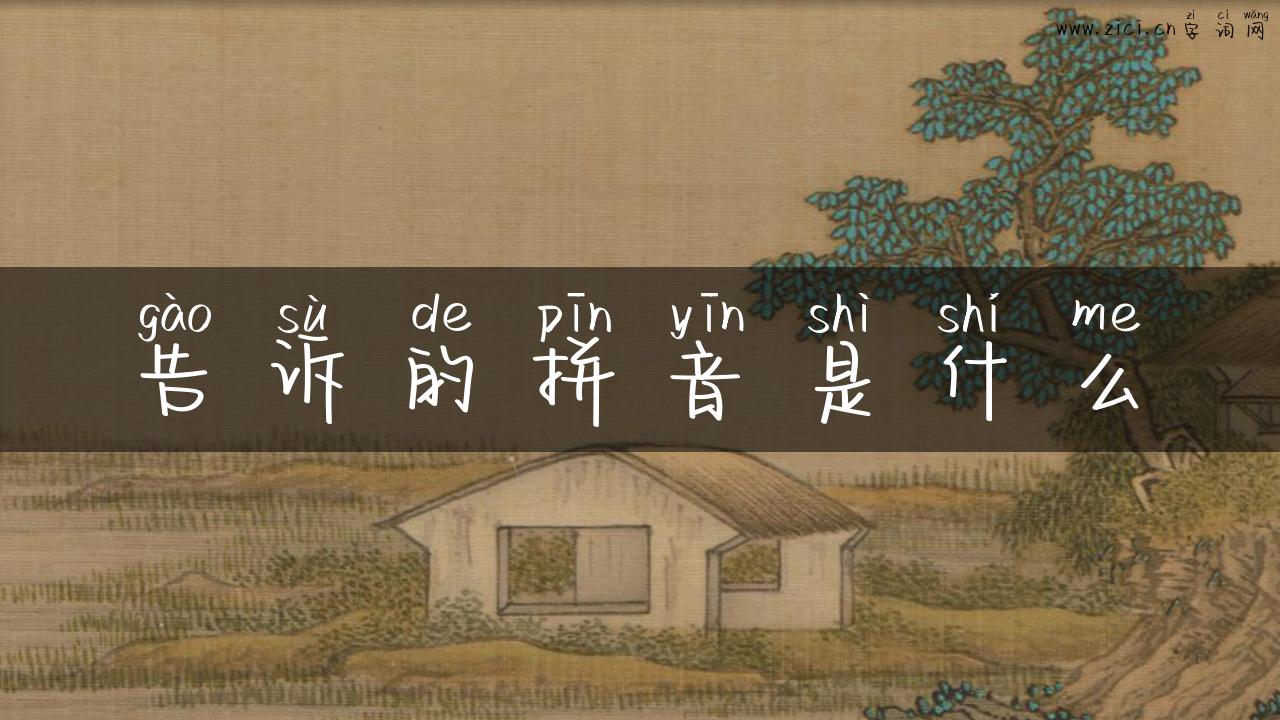 zì cí wǎng
www.zici.cn 字词网
gào sù de pīn yīn shì shí me
告诉的拼音是什么